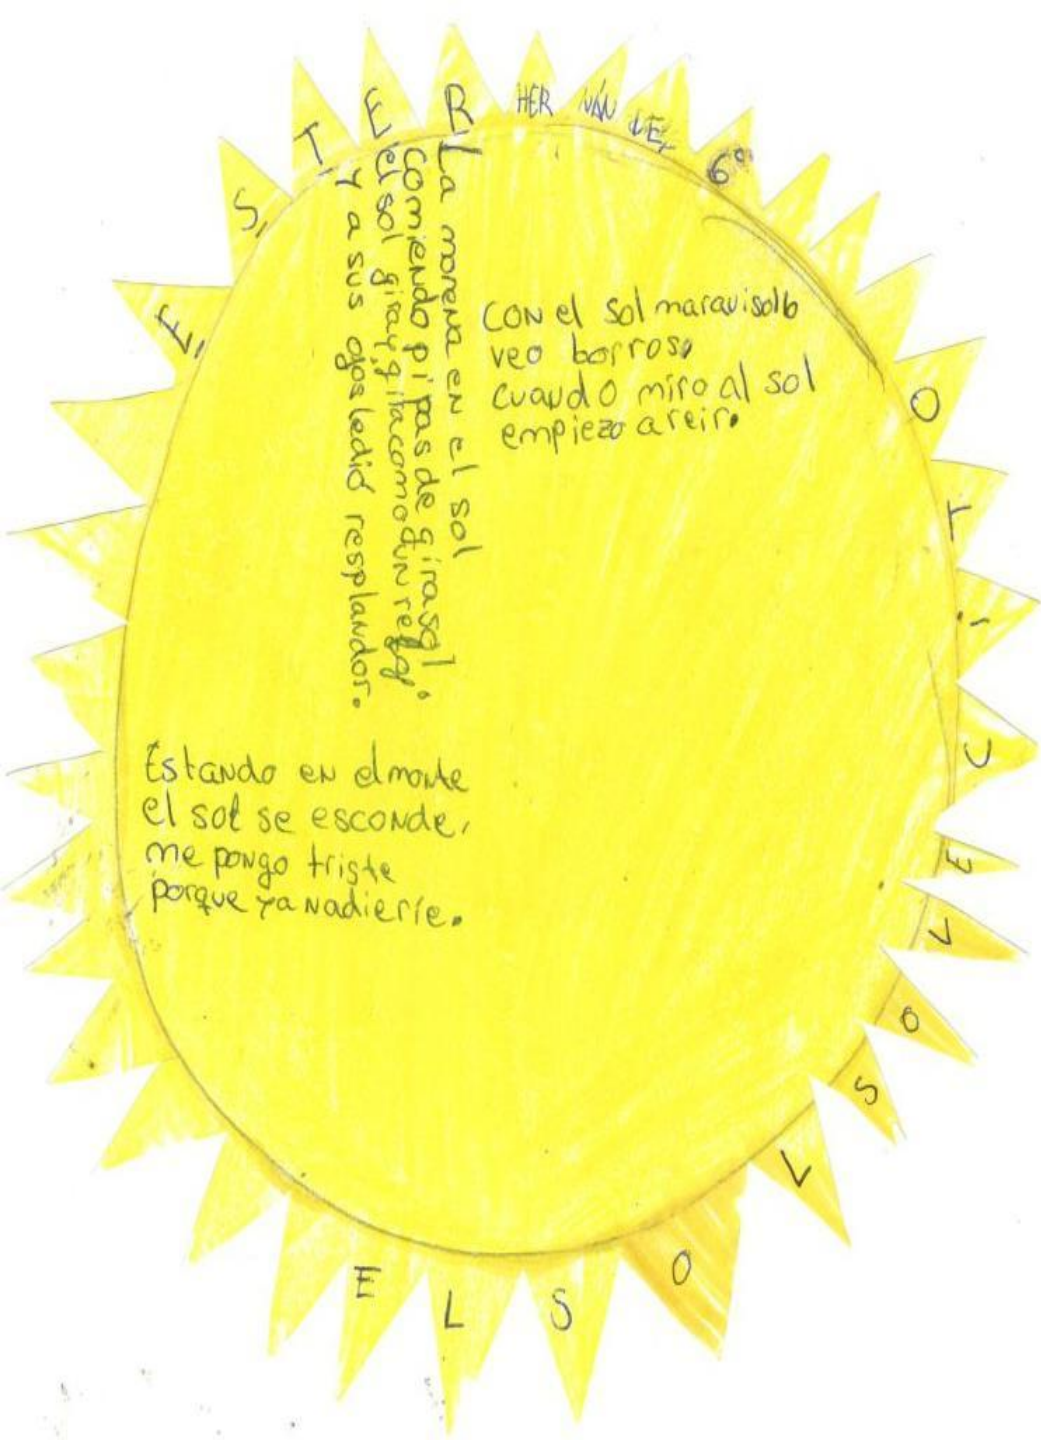 ESTER HERNÁNDEZ 6º
La morena en el sol
comiendo pipas de girasol,
el sol gira y gira como un reloj
y a sus ojos le dió resplandor.
CON el sol
veo borroso
cuando miro al sol
empiezo a reir.
Estando en el monte
el sol se esconde,
me pongo triste
porque ya nadie ríe.
EL SOL SOLECITO